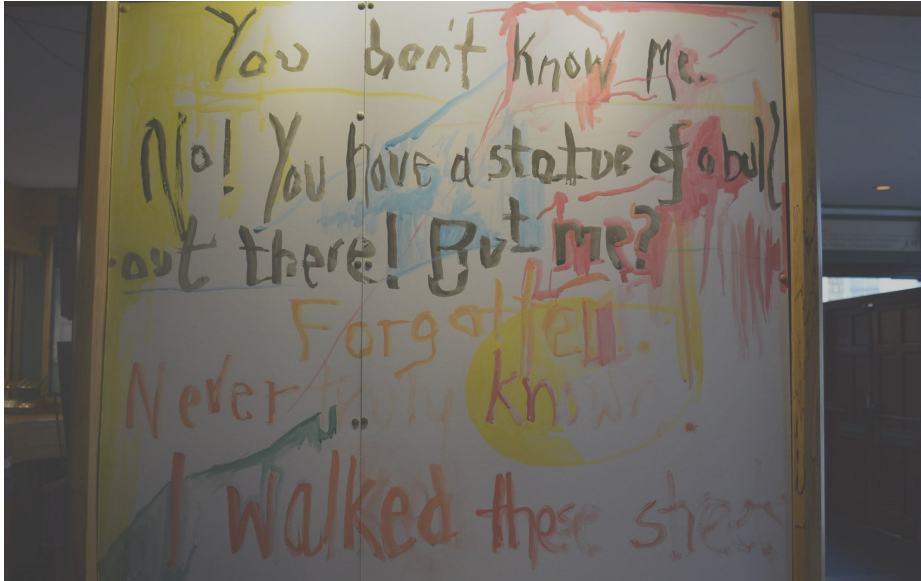 You don't know me.
No! You have a statue of a bull
out there! But me?
Forgotten.
Never truly known
I walked these